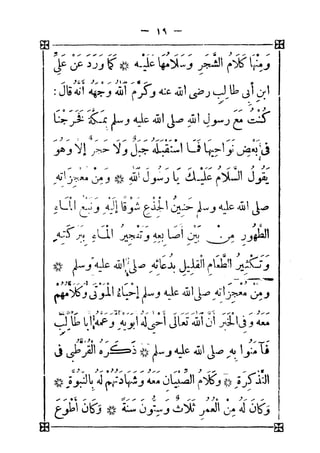 — ١٩ —
وَمِنْهَا كَلَامُ الشَّجَرِ وَسَلَامُهَا عَلَيْهِ * كَمَا وَرَدَ عَنْ عَلِيِّ
ابْنِ أَبِي طَالِبٍ رضى الله عنه وَكَرَّمَ اللهُ وَجْهَهُ أَنَّهُ قَالَ :
كُنْتُ مَعَ رَسُولِ اللهِ صلى الله عليه وسلم بِمَكَّةَ فَخَرَجْنَا
فِى بَعْضِ نَوَاحِيهَا فَمَا اسْتَقْبَلَهُ جَبَلٌ وَلَا حَجَرٌ إِلَّا وَهُوَ
يَقُولُ السَّلَامُ عَلَيْكَ يَا رَسُولَ اللهِ * وَمِنْ مُعْجِزَاتِهِ
صلى الله عليه وسلم حَنِينُ الْجِذْعِ شَوْقًا إِلَيْهِ وَنَبْعُ الْمَاءِ
الطَّهُورِ مِنْ بَيْنِ أَصَابِعِهِ وَتَفْجِيرُ الْمَاءِ بِبَرَكَتِهِ
وَتَكْثِيرُ الطَّعَامِ الْقَلِيلِ بِدُعَائِهِ صلى الله عليه وسلم *
وَمِنْ مُعْجِزَاتِهِ صلى الله عليه وسلم إِحْيَاءُ الْمَوْتَى وَكَلَامُهُمْ
مَعَهُ وَفِى الْخَبَرِ أَنَّ اللهَ تَعَالَى أَحْيَى لَهُ أَبَوَيْهِ وَعَمَّهُ أَبَا طَالِبٍ
فَآمَنُوا بِهِ صلى الله عليه وسلم * ذَكَرَهُ الْقُرْطُبِى فِى
التَّذْكِرَةِ * وَكَلَامُ الصِّبْيَانِ مَعَهُ وَشَهَادَتُهُمْ لَهُ بِالنُّبُوَّةِ *
وَكَانَ لَهُ مِنَ الْعُمْرِ ثَلَاثٌ وَسِتُّونَ سَنَةً * وَكَانَ أَطْوَعَ